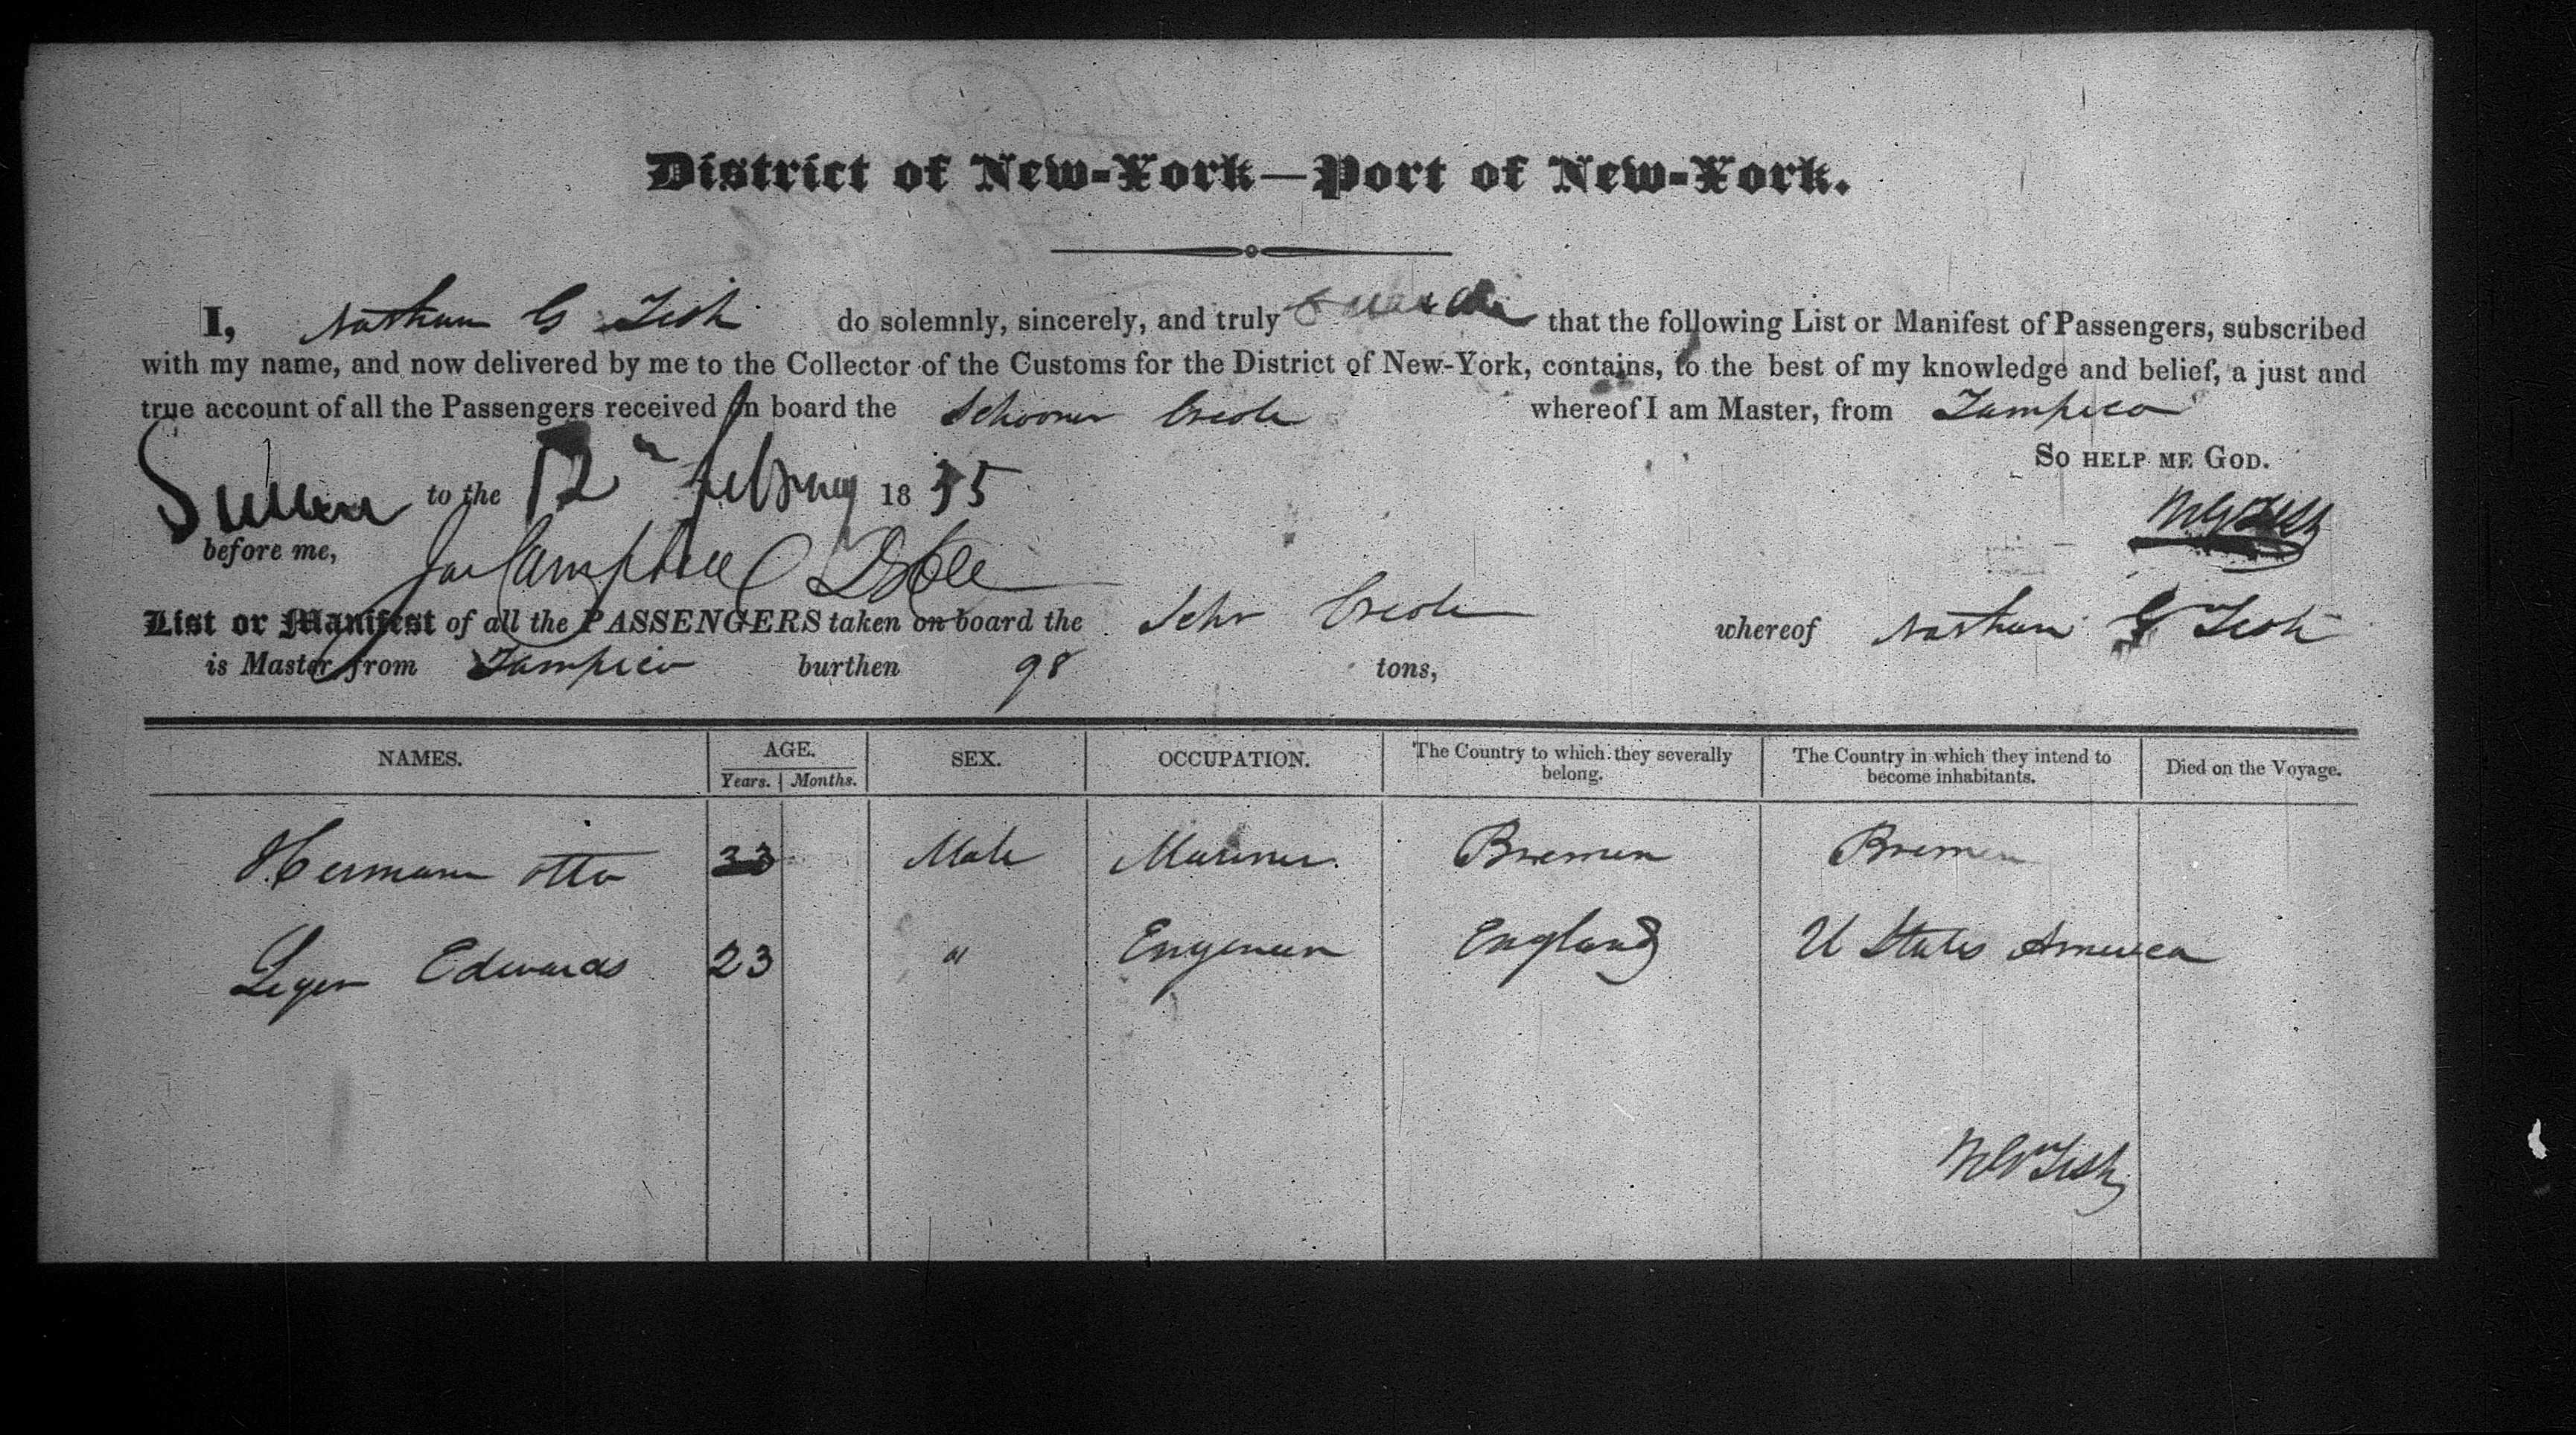 District of New-York—Port of New-York.
I, Nathan G Fish do solemnly, sincerely, and truly swear that the following List or Manifest of Passengers, subscribed
with my name, and now delivered by me to the Collector of the Customs for the District of New-York, contains, to the best of my knowledge and belief, a just and
true account of all the Passengers received on board the Schooner Creole whereof I am Master, from Tampico
So help me God.
Sworn to the 12 February 1835
N G Fish
before me, Campbell
List or Manifest of all the PASSENGERS taken on board the Schr Creole whereof Nathan G Fish
is Master, from Tampico burthen 98 tons,
NAMES. AGE. SEX. OCCUPATION. The Country to which they severally belong. The Country in which they intend to become inhabitants. Died on the Voyage.
Years. Months.
Hermann otto 33 Male Mariner Bremen Bremen
Edwards 23 " Engeneer England U States America
N G Fish